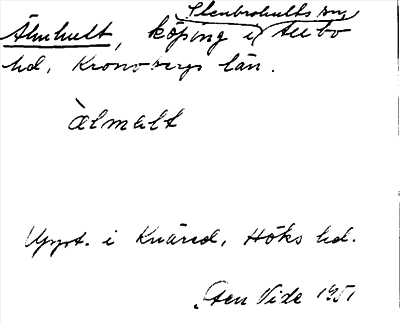 Stenbrohults sn
Älmhult, köping i Allbo
hd, Kronobergs län.
àlmalt
Uppt. i Knäred, Höks hd.
Sten Vide 1951